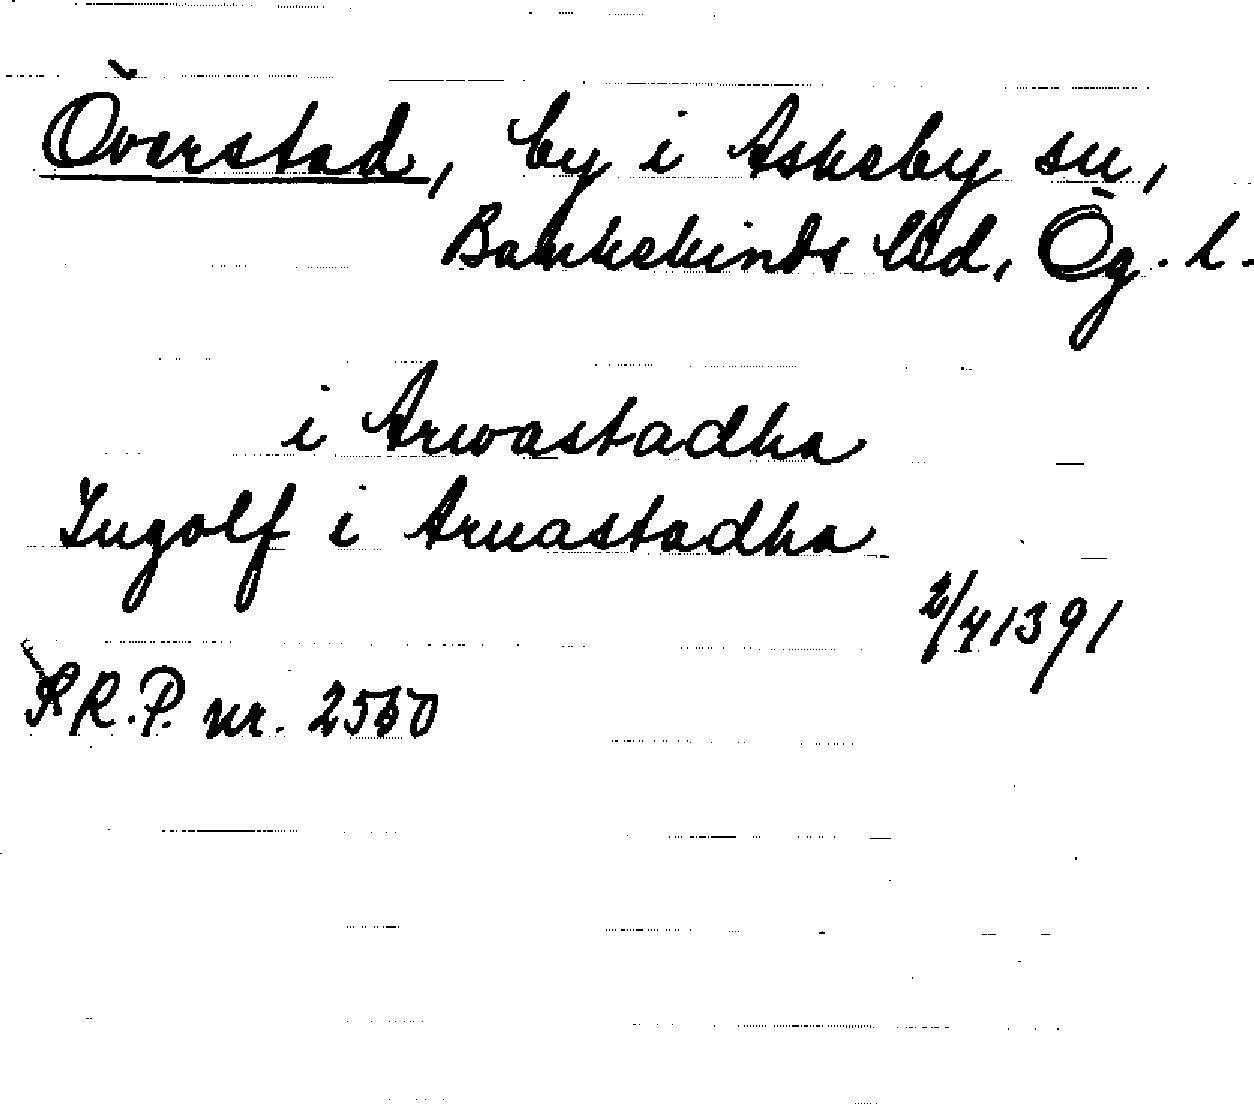 Överstad, by i Askeby sn,
Bankekinds hd, Ög. l.
i Arwastadha
Ingolf i Arnastadha
2/4 1391
S R.P. nr. 2560